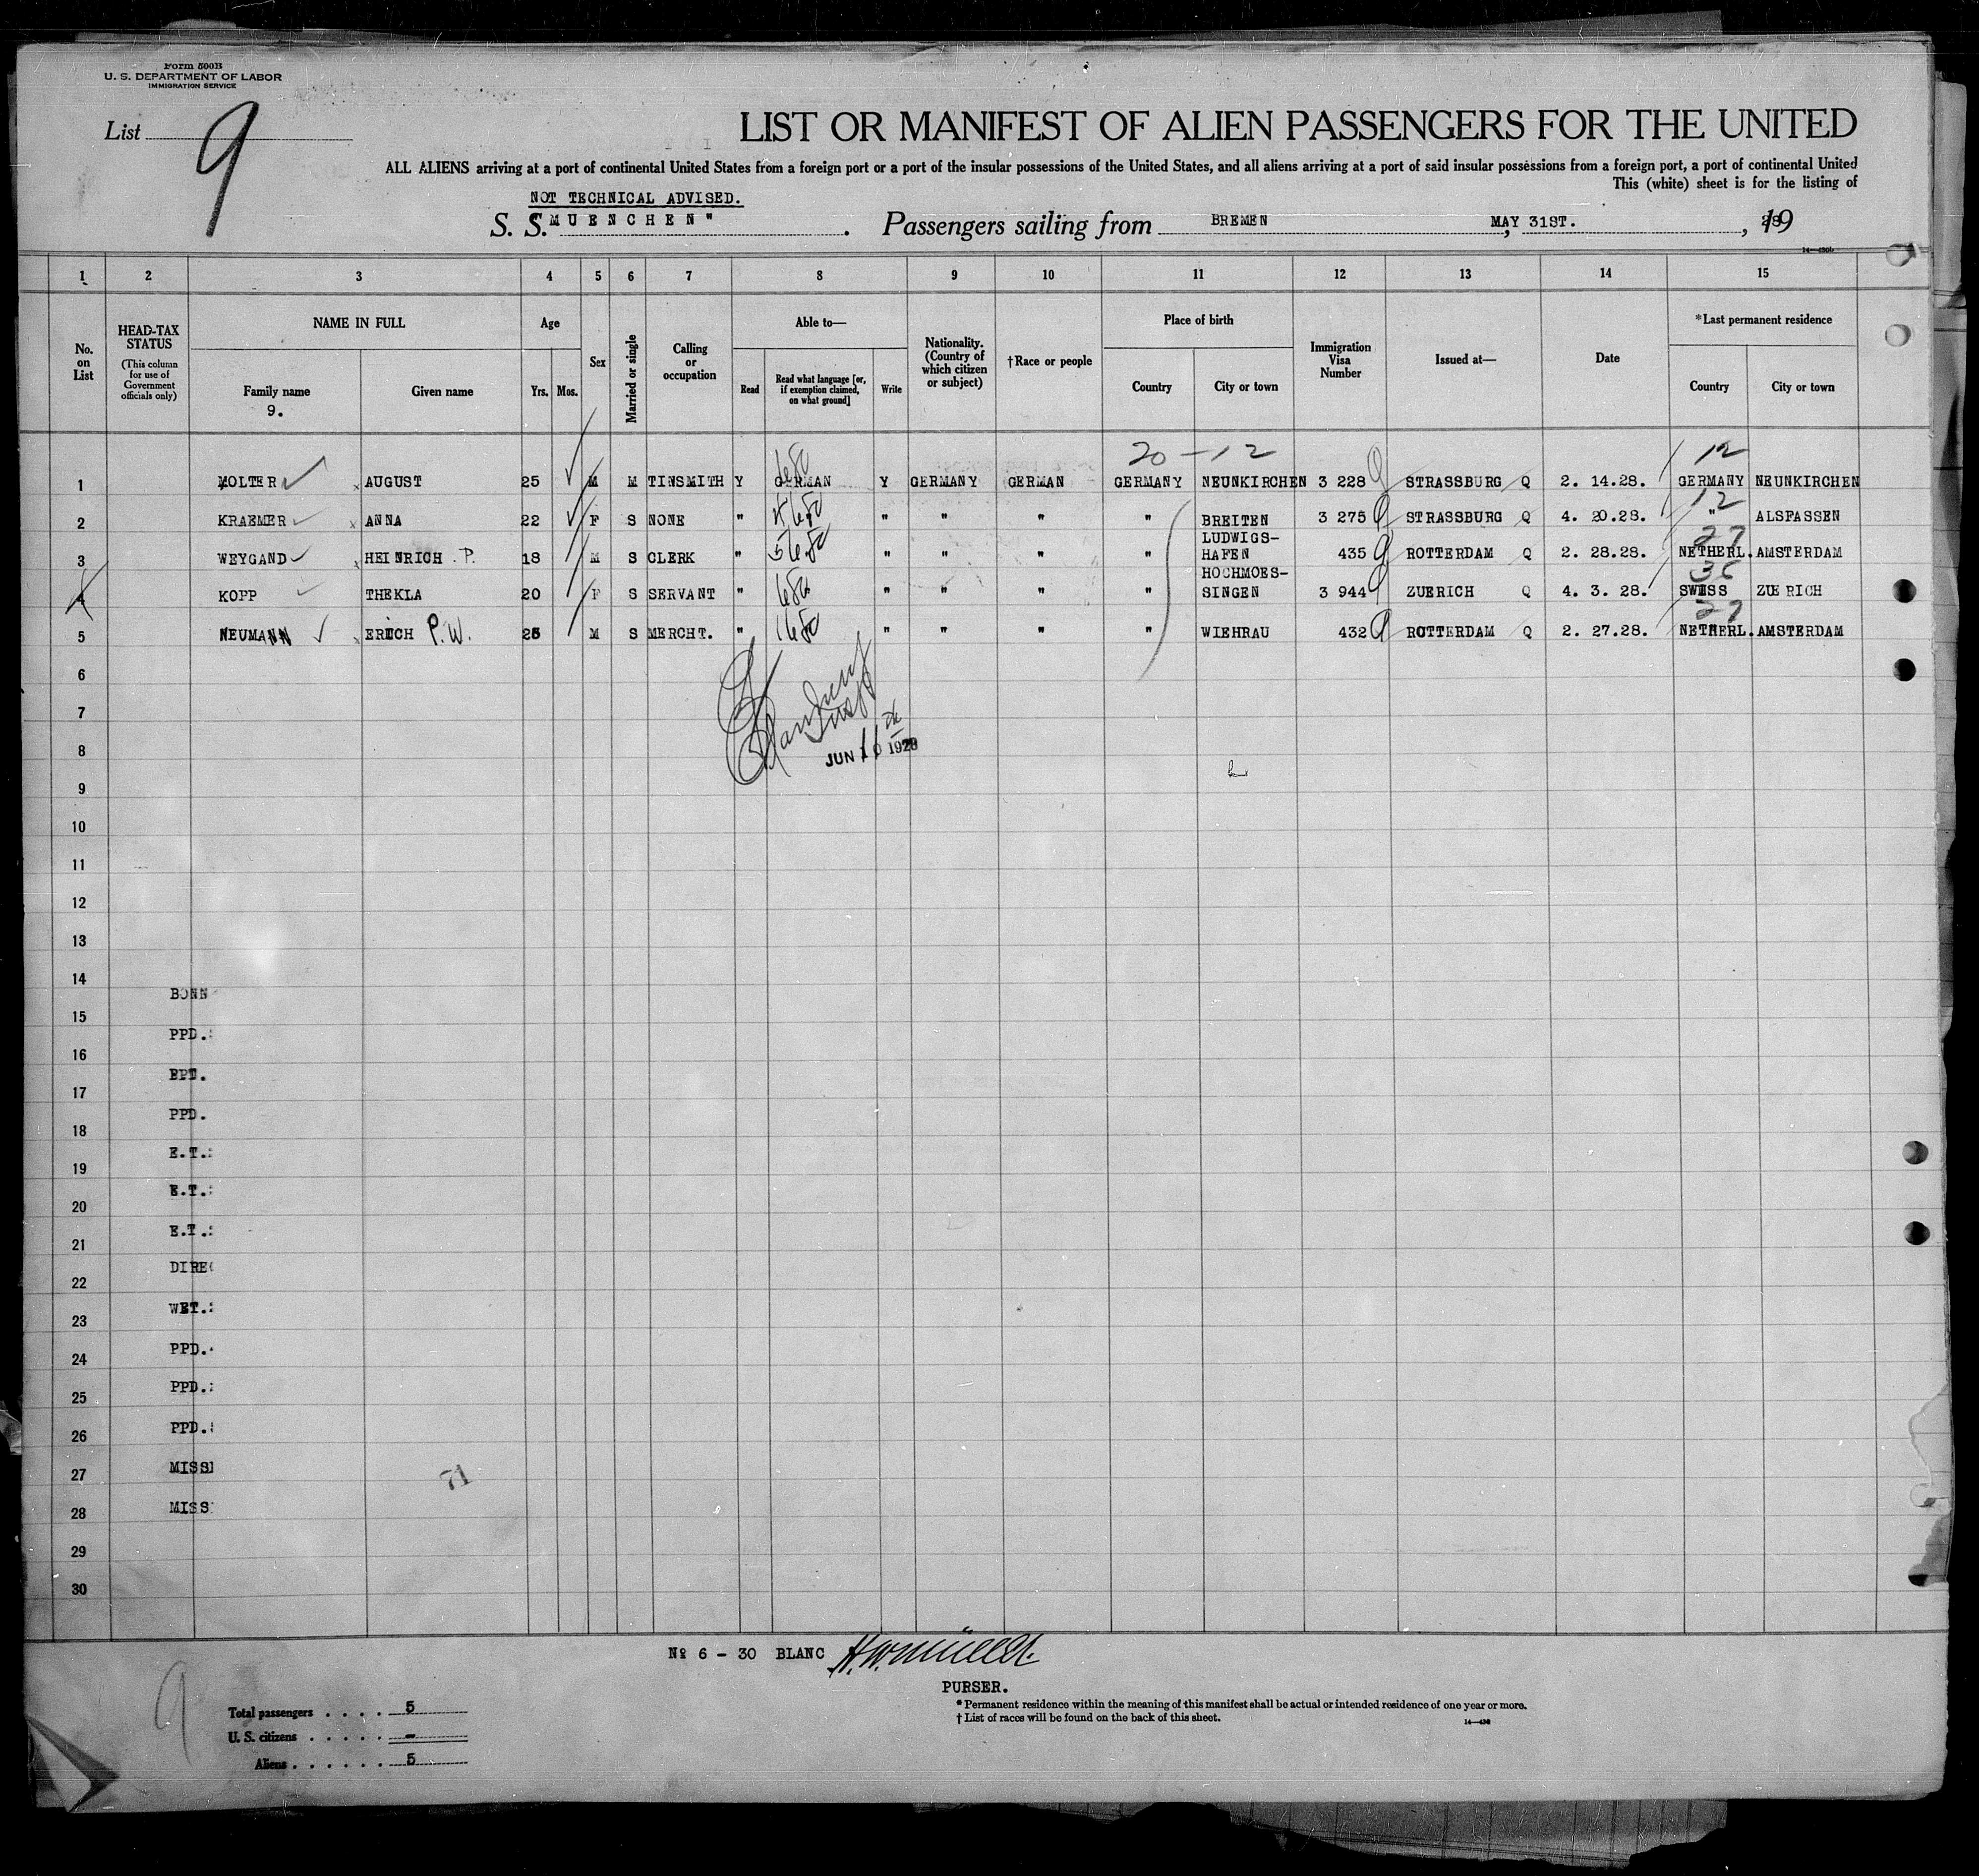 Form 500B
U. S. DEPARTMENT OF LABOR
IMMIGRATION SERVICE
List 9
LIST OR MANIFEST OF ALIEN PASSENGERS FOR THE UNITED
ALL ALIENS arriving at a port of continental United States from a foreign port or a port of the insular possessions of the United States, and all aliens arriving at a port of said insular possessions from a foreign port, a port of continental United
This (white) sheet is for the listing of
NOT TECHNICAL ADVISED.
S. S. "MUENCHEN" . Passengers sailing from BREMEN , MAY 31ST. , 1928
1 2 3 4 5 6 7 8 9 10 11 12 13 14 15
No. on List
HEAD-TAX STATUS (This column for use of Government officials only)
NAME IN FULL
Family name
Given name
9.
Age
Yrs. Mos.
Sex
Married or single
Calling or occupation
Able to—
Read
Read what language [or, if exemption claimed, on what ground]
Write
Nationality. (Country of which citizen or subject)
†Race or people
Place of birth
Country
City or town
Immigration Visa Number
Issued at—
Date
*Last permanent residence
Country
City or town
20 - 12 12
1 MOLTER AUGUST 25 M M TINSMITH Y GERMAN Y GERMANY GERMAN GERMANY NEUNKIRCHEN 3 228 STRASSBURG Q 2. 14.28. GERMANY NEUNKIRCHEN
12
2 KRAEMER ANNA 22 F S NONE " " " " " BREITEN 3 275 STRASSBURG Q 4. 20.28. " ALSFASSEN
27
3 WEYGAND HEINRICH P. 18 M S CLERK " " " " " LUDWIGS-HAFEN 435 ROTTERDAM Q 2. 28.28. NETHERL. AMSTERDAM
36
4 KOPP THEKLA 20 F S SERVANT " " " " HOCHMOES-SINGEN 3 944 ZUERICH Q 4. 3. 28. SWISS ZUERICH
27
5 NEUMANN ERICH P.W. 25 M S MERCHT. " " " " " WIEHRAU 432 ROTTERDAM Q 2. 27.28. NETHERL. AMSTERDAM
6
7
8 JUN 11 1928
9
10
11
12
13
14
BONN
15
PPD.
16
17
PPD.
18
E.T.
19
E.T.
20
E.T.
21
DIREC
22
WET.
23
PPD.
24
PPD.
25
PPD.
26
MISSI
27
71
MISS
28
29
30
№ 6 - 30 BLANC
PURSER.
* Permanent residence within the meaning of this manifest shall be actual or intended residence of one year or more.
† List of races will be found on the back of this sheet.
9
Total passengers . . . . 5
U. S. citizens . . . . . -
Aliens . . . . . . 5